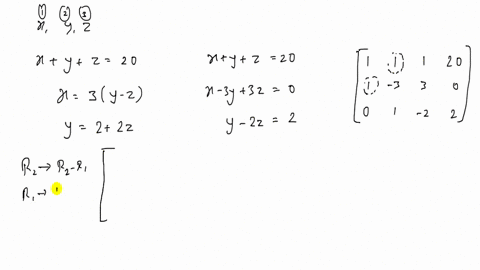 ① ② ③
x, y, z
x + y + z = 20
x = 3(y-z)
y = 2+2z
x+y+z = 20
x-3y+3z = 0
y-2z = 2
1 1 1 20
1 -3 3 0
0 1 -2 2
R₂ → R₂-R₁
R₁ →